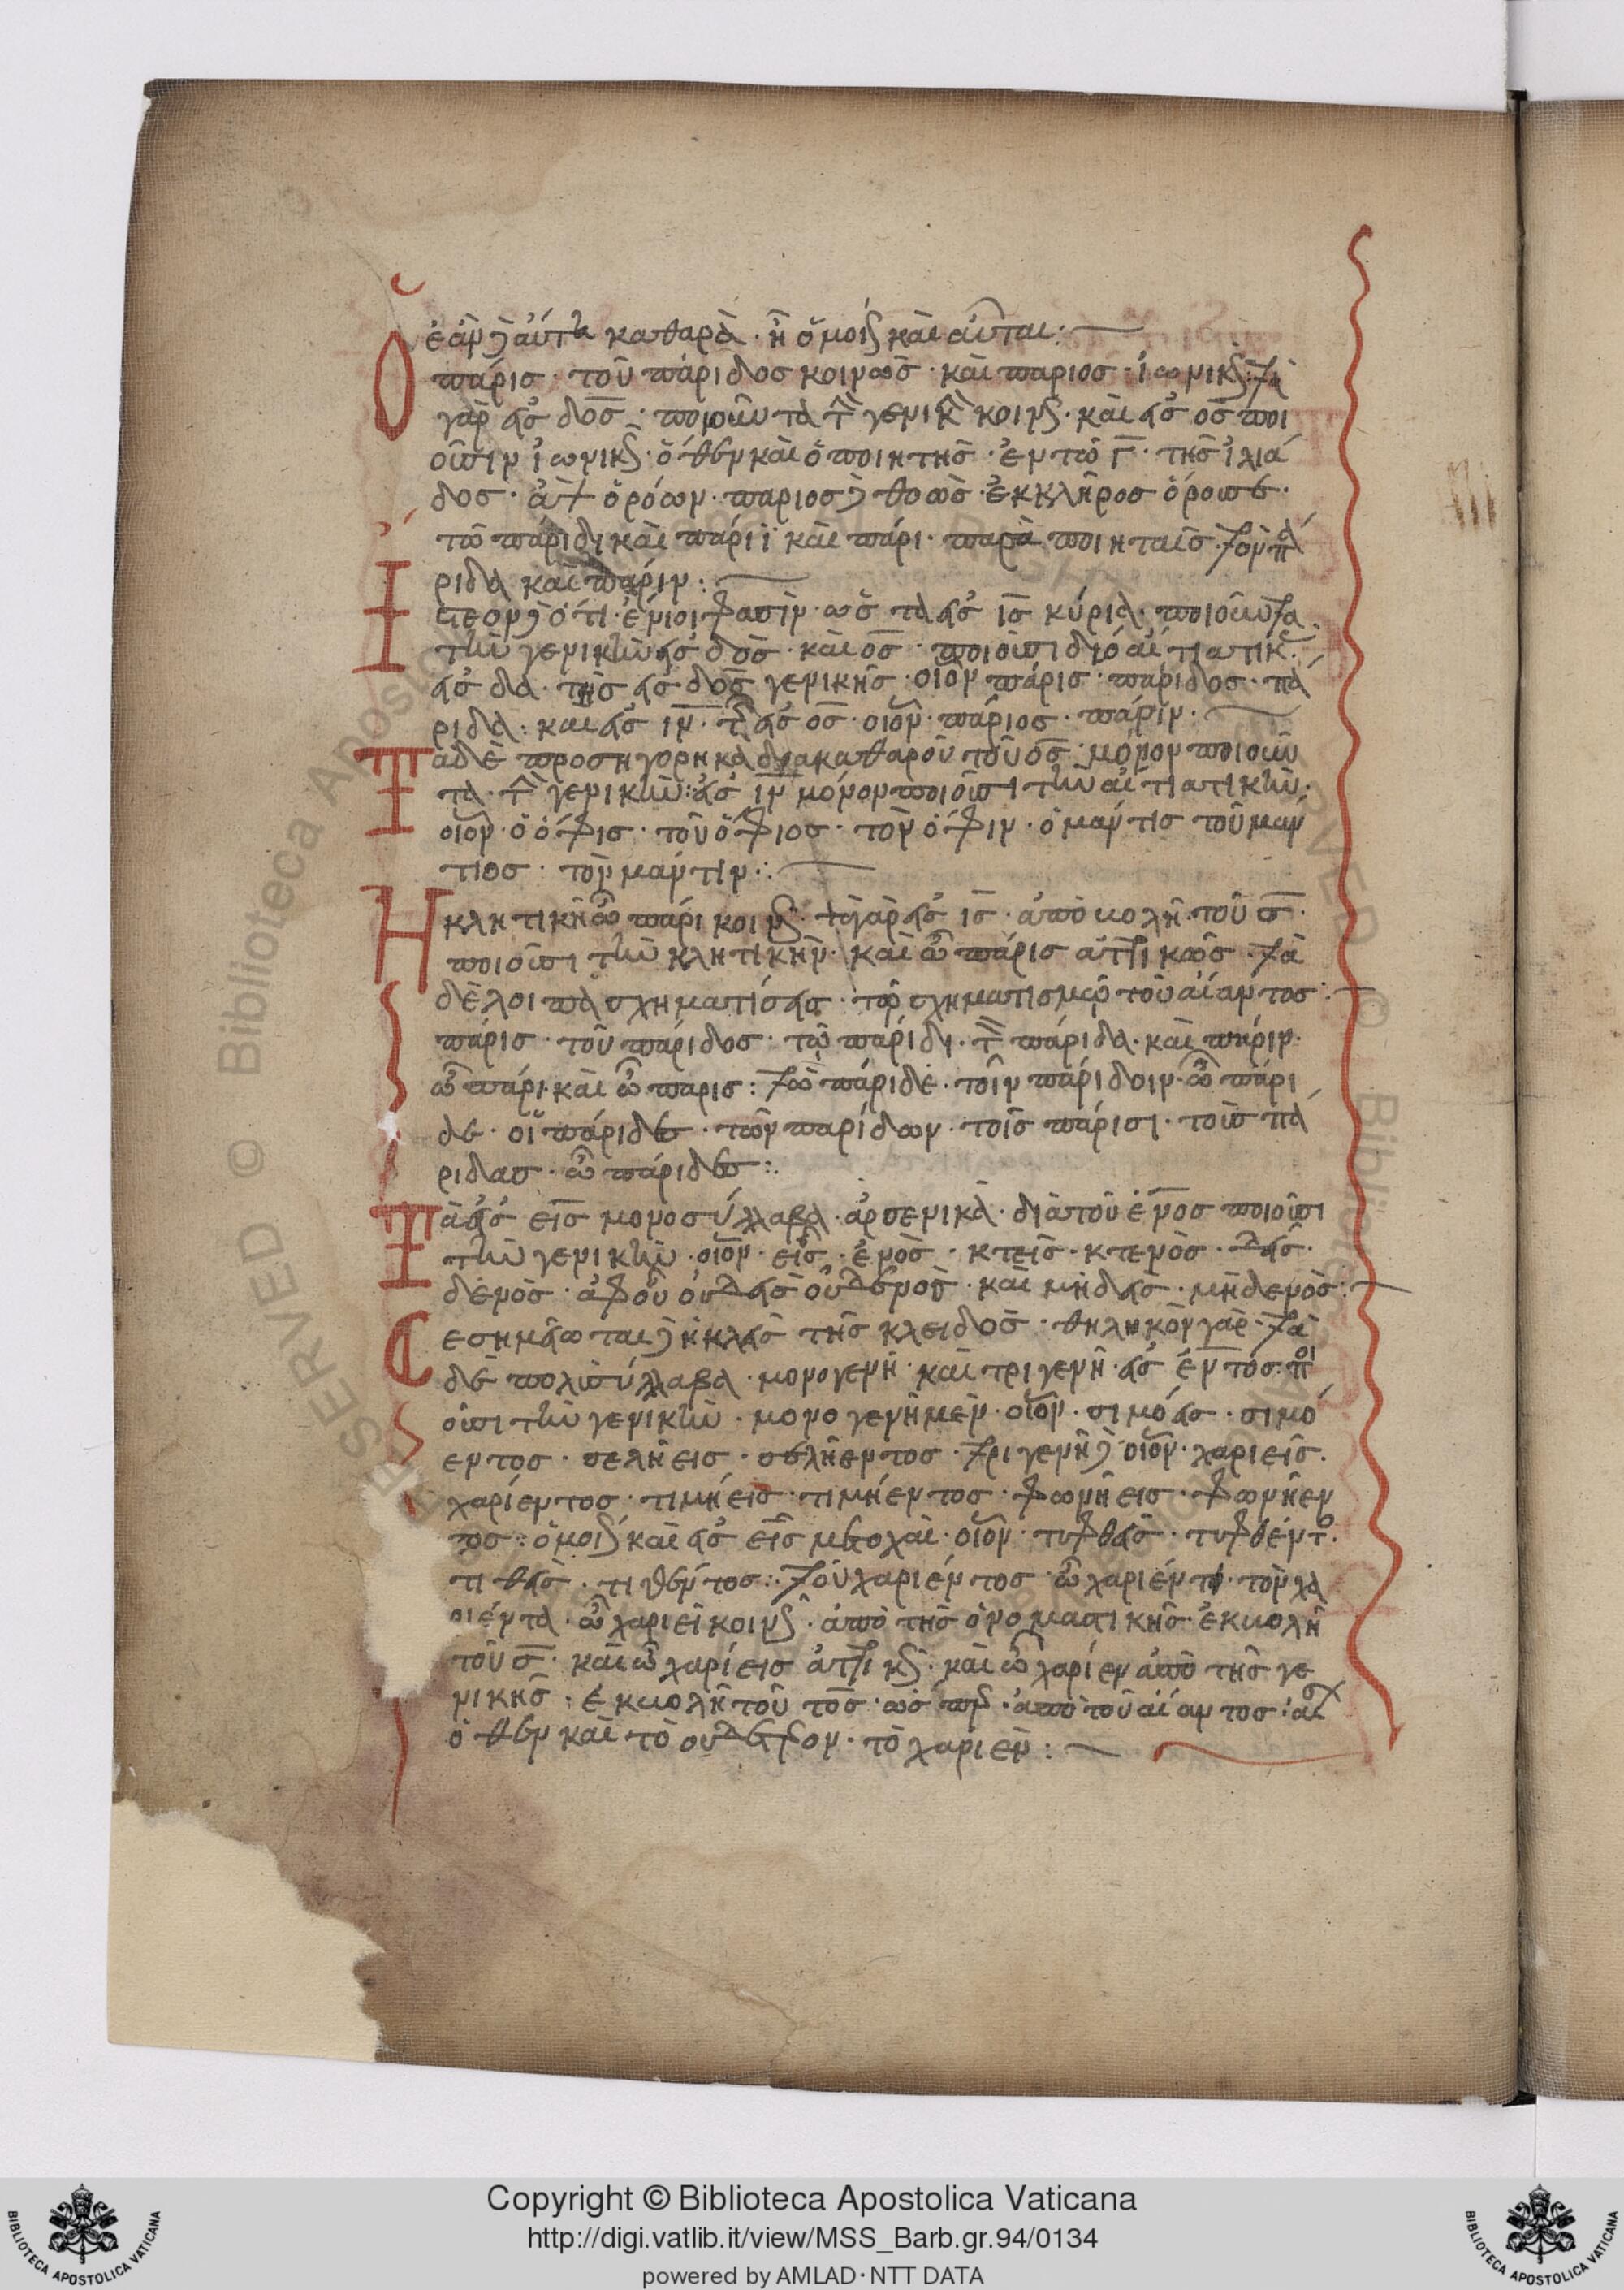 ἐὰν δὲ αὐτὴ καθαρά· ἢ ὁμοίως καὶ αὗται:
Ὁ πάρις· τοῦ πάριδος κοινῶς· καὶ παριος· ἰωνικῶς· τὰ
γὰρ εἰς δος· ποιοῦντα τὴν γενικὴν κοινῶς· καὶ εἰς ος ποι
οῦσιν ἰωνικῶς· ὅθεν καὶ ὁ ποιητὴς· ἐν τῶ γ· τῆς ἰλιά
δος·
τῶ πάριδι καὶ πάριϊ καὶ πάρι· παρὰ ποιηταῖς· τὸν πά
ριδα καὶ πάριν:
Ἰστέον δὲ ὅτι ἔνιοι φασὶν· ὡς τὰ εἰς ις κύρια· ποιοῦντα
τὴν γενικὴν εἰς δος· καὶ ος· ποιοῦσι αἰτιατικ
εἰς δα· τῆς εἰς δος γενικῆς· οἷον πάρις· πάριδος· πά
ριδα· καὶ εἰς ιν· τῆς εἰς ος· οἷον· πάριος· πάριν·
Τὰ δὲ προσηγορηκὰ διακαθαροῦ τοῦ ος· μόνον ποιοῦν
τα· τὴν γενικὴν· εἰς ιν μόνον ποιοῦσι τὴν αἰτιατικὴν·
οἷον· ὁ ὄφις· τοῦ ὄφιος· τὸν ὄφιν· ὁ μάντις τοῦ μάν
τιος· τὸν μάντιν:
Ἡ κλητικὴ ὦ πάρι κοινῶς· τὰ γὰρ εἰς ις· ἀποβολῆ τοῦ ς·
ποιοῦσι τὴν κλητικὴν· καὶ ὦ πάρις ἀττικῶς· τὰ
δὲ λοιπὰ σχηματίσεις· τῷ σχηματισμῷ τοῦ αἴαντος:
πάρις· τοῦ πάριδος· τῷ πάριδι· τὸν πάριδα· καὶ πάριν·
ὦ πάρι καὶ ὦ παρις: τὼ πάριδε· τοῖν παρίδοιν· ὦ πάρι
δε· οἱ πάριδες· τῶν παρίδων· τοῖς πάρισι· τοὺς πά
ριδας· ὦ πάριδες:
Τὰ εἰς εις μονοσύλλαβα· ἀρσενικὰ· διὰ τοῦ ένος ποιοῦσι
τὴν γενικὴν· οἷον· εἷς· ἑνὸς· κτεὶς· κτενὸς· δεὶς·
δενὸς· ἀφοῦ οὐδεὶς οὐδενὸς· καὶ μηδεὶς· μηδενὸς:
Σεσημείωται δὲ ἡ κλεὶς τῆς κλειδὸς· θηλυκὸν γὰρ· τὰ
δὲ πολισύλλαβα· μονογενῆ· καὶ τριγενῆ· εἰς έντος· ποι
οῦσι τὴν γενικὴν· μονογενῆ μὲν· οἷον· σιμόεις· σιμό
εντος· σελήεις· σελήεντος· τριγενῆ δὲ οἷον· χαρίεις·
χαρίεντος· τιμήεις· τιμήεντος· φωνήεις· φωνήεν
τος: ὁμοίως καὶ εἰς εις μετοχαὶ· οἷον· τυφθεὶς· τυφθέντος·
τιθεὶς· τιθέντος: τοῦ χαριέντος· ὦ χαριέντι· τὸν χα
ριέντα· ὦ χαριεὶ κοινῶς· ἀπὸ τῆς ὀνομαστικῆς· ἐκβολῆ
τοῦ ς· καὶ ὦ χαρίεις ἀττικῶς· καὶ ὦ χαρίεν ἀπὸ τῆς γε
νικῆς· ἐκβολῆ τοῦ τος· ὥσπερ· ἀπὸ τοῦ αἴαντος·
ὅθεν καὶ τὸ οὐδέτερον· τὸ χαρίεν:
Copyright © Biblioteca Apostolica Vaticana
http://digi.vatlib.it/view/MSS_Barb.gr.94/0134
powered by AMLAD·NTT DATA